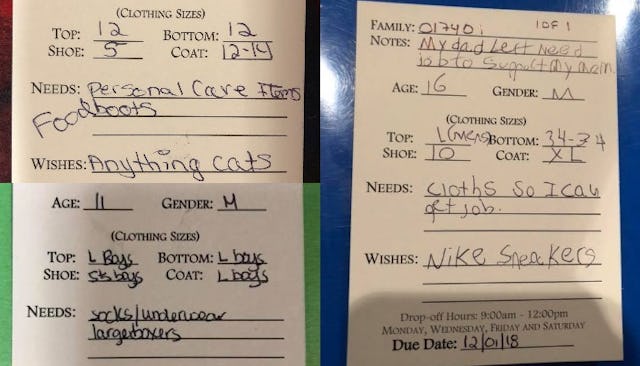 (CLOTHING SIZES)
TOP: 12 BOTTOM: 12
SHOE: 5 COAT: 12-14
NEEDS: Personal Care Items
Food boots
WISHES: Anything cats
AGE: 11 GENDER: M
(CLOTHING SIZES)
TOP: L Boys BOTTOM: L boys
SHOE: boys COAT: L boys
NEEDS: socks/underwear
large boxers
FAMILY: 01740i 1 OF 1
NOTES: My dad Left Need
job to Support My mom.
AGE: 16 GENDER: M
(CLOTHING SIZES)
TOP: L(mens) BOTTOM: 34-34
SHOE: 10 COAT: XL
NEEDS: Cloths So I can
get job.
WISHES: Nike Sneakers
Drop-off Hours: 9:00am - 12:00pm
MONDAY, WEDNESDAY, FRIDAY AND SATURDAY
Due Date: 12/01/18